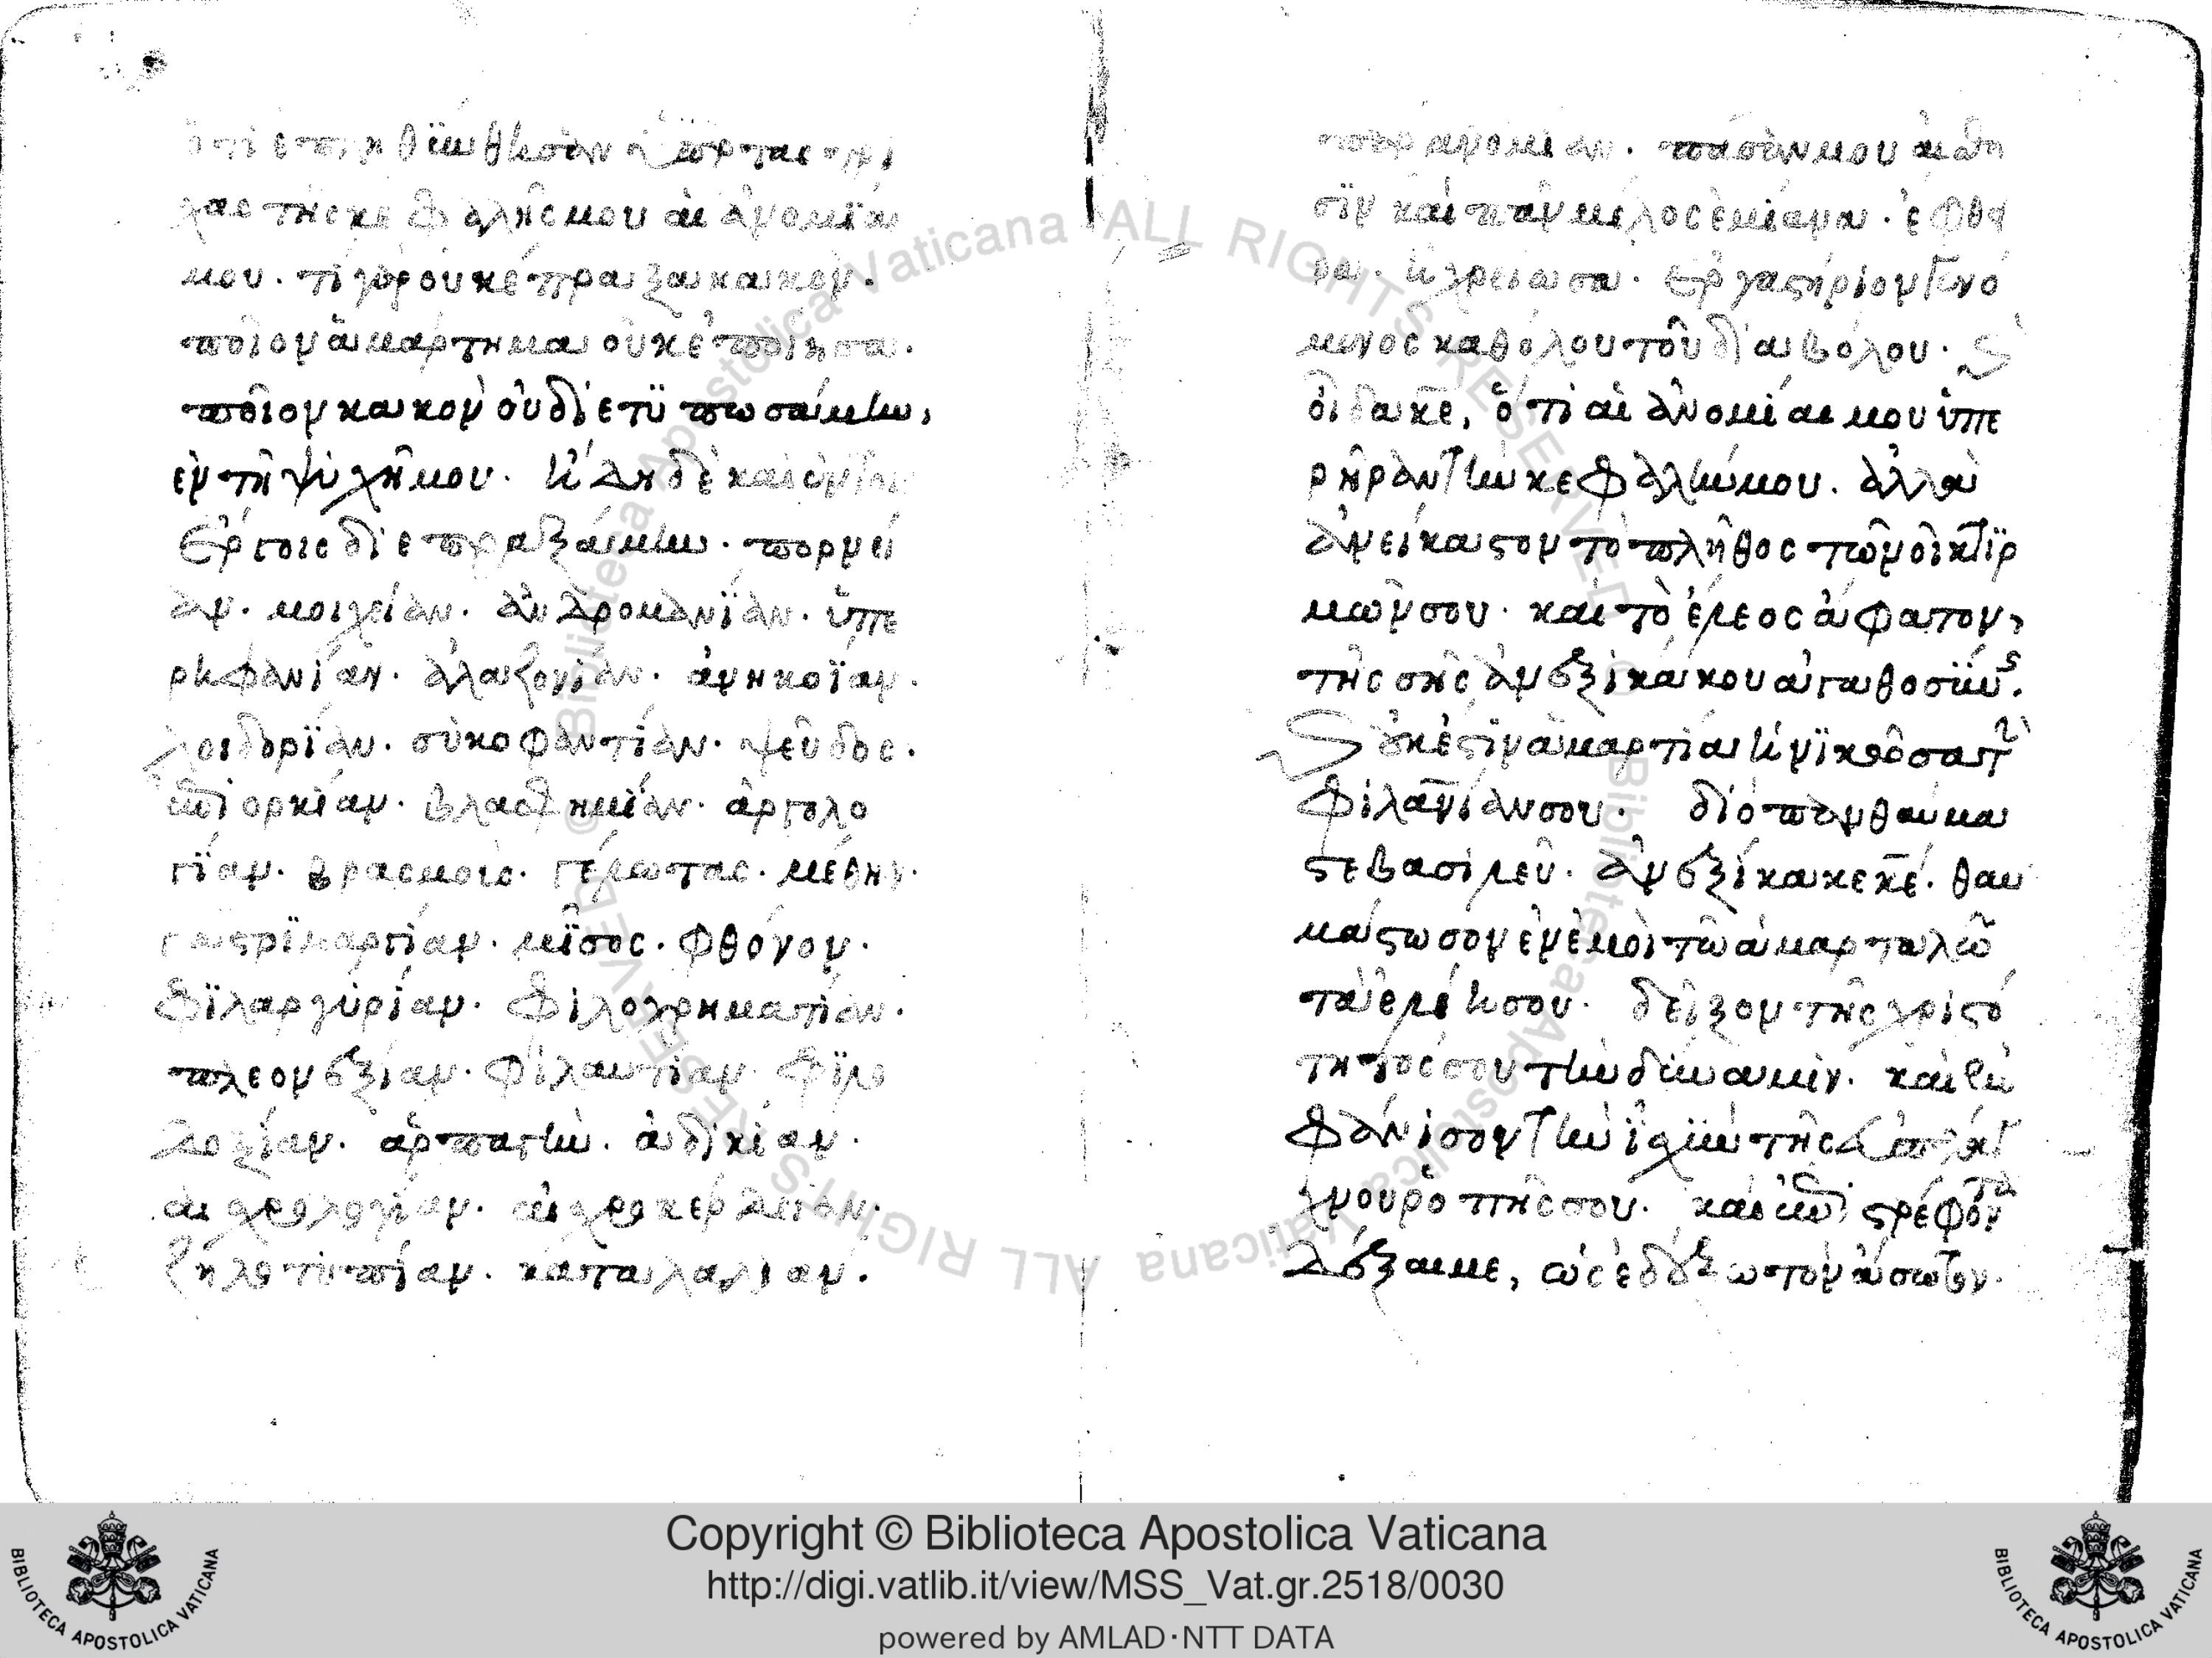 ὅτι ἐπληθύνθησαν ὑπὲρ τὰς τρί
χας τῆς κεφαλῆς μου αἱ ἀνομίαι
μου. τί γὰρ οὐκ ἔπραξα κακόν.
ποῖον ἁμάρτημα οὐκ ἐποίησα.
ποῖον κακὸν οὐ διετϋπωσάμην,
ἐν τῆ ψυχῆ μου. ἤδη δὲ καὶ ἐν τοῖς
ἔργοις διεπραξάμην. πορνεί
αν. μοιχείαν. ἀνδρομανϊαν. ὑπε
ρηφανίαν. ἀλαζονίαν. ἀνηκοϊαν.
λοιδορϊαν. συκοφαντίαν. ψεῦδος.
ἐπιορκίαν. βλασφημίαν. ἀργολο
γϊαν. βρασμοὶς. γέλωτας. μέθην.
γαστριμαργίαν. μῖσος. φθόνον.
φϊλαργυρίαν. φιλοχρηματίαν.
πλεονεξίαν. φιλαυτίαν. φϊλο
δοξίαν. ἁρπαγὴν. ἀδικίαν.
αἰσχρολογίαν. αἰσχροκέρδειαν.
ζηλοτυπίαν. καταλαλιαν.
παρανομίαν. πᾶσάν μου αἴσθη
σϊν καὶ πᾶν μέλος ἐμίανα. ἔφθει
ρα. ἠχρείωσα. ἐργαστήριον γενό
μενος καθόλου τοῦ διαβόλου. καὶ
οἶδα κε, ὅτι αἱ ἀνομίαι μου ὑπε
ρῆραν τὴν κεφαλήν μου. ἀλλὰ
ἀνείκαστον τὸ πλῆθος τῶν οἰκτϊρ
μῶν σου. καὶ τὸ ἔλεος ἄφατον,
τῆς σῆς ἀνεξικάκου ἀγαθοσύνης.
καὶ οὐκ ἔστιν ἁμαρτία ἡ νϊκῶσα τὴν
φιλανίαν σου. διὸ πανθαύμα
στε βασιλεῦ. ἀνεξίκακε κε. θαυ
μάστωσον ἐν ἐμοὶ τῶ ἁμαρτωλῶ
τὰ ἐλέη σου. δεῖξον τῆς χριστό
τητός σου τὴν δύναμιν. καὶ ἐμ
φάνισον τὴν ἰσχὺν τῆς εὐσπλάγ
χνου ῥοπῆς σου. καὶ ἐπιστρέφοντα
δέξαι με, ὡς ἐδέξω τὸν ἄσωτον.
Copyright © Biblioteca Apostolica Vaticana
http://digi.vatlib.it/view/MSS_Vat.gr.2518/0030
powered by AMLAD·NTT DATA